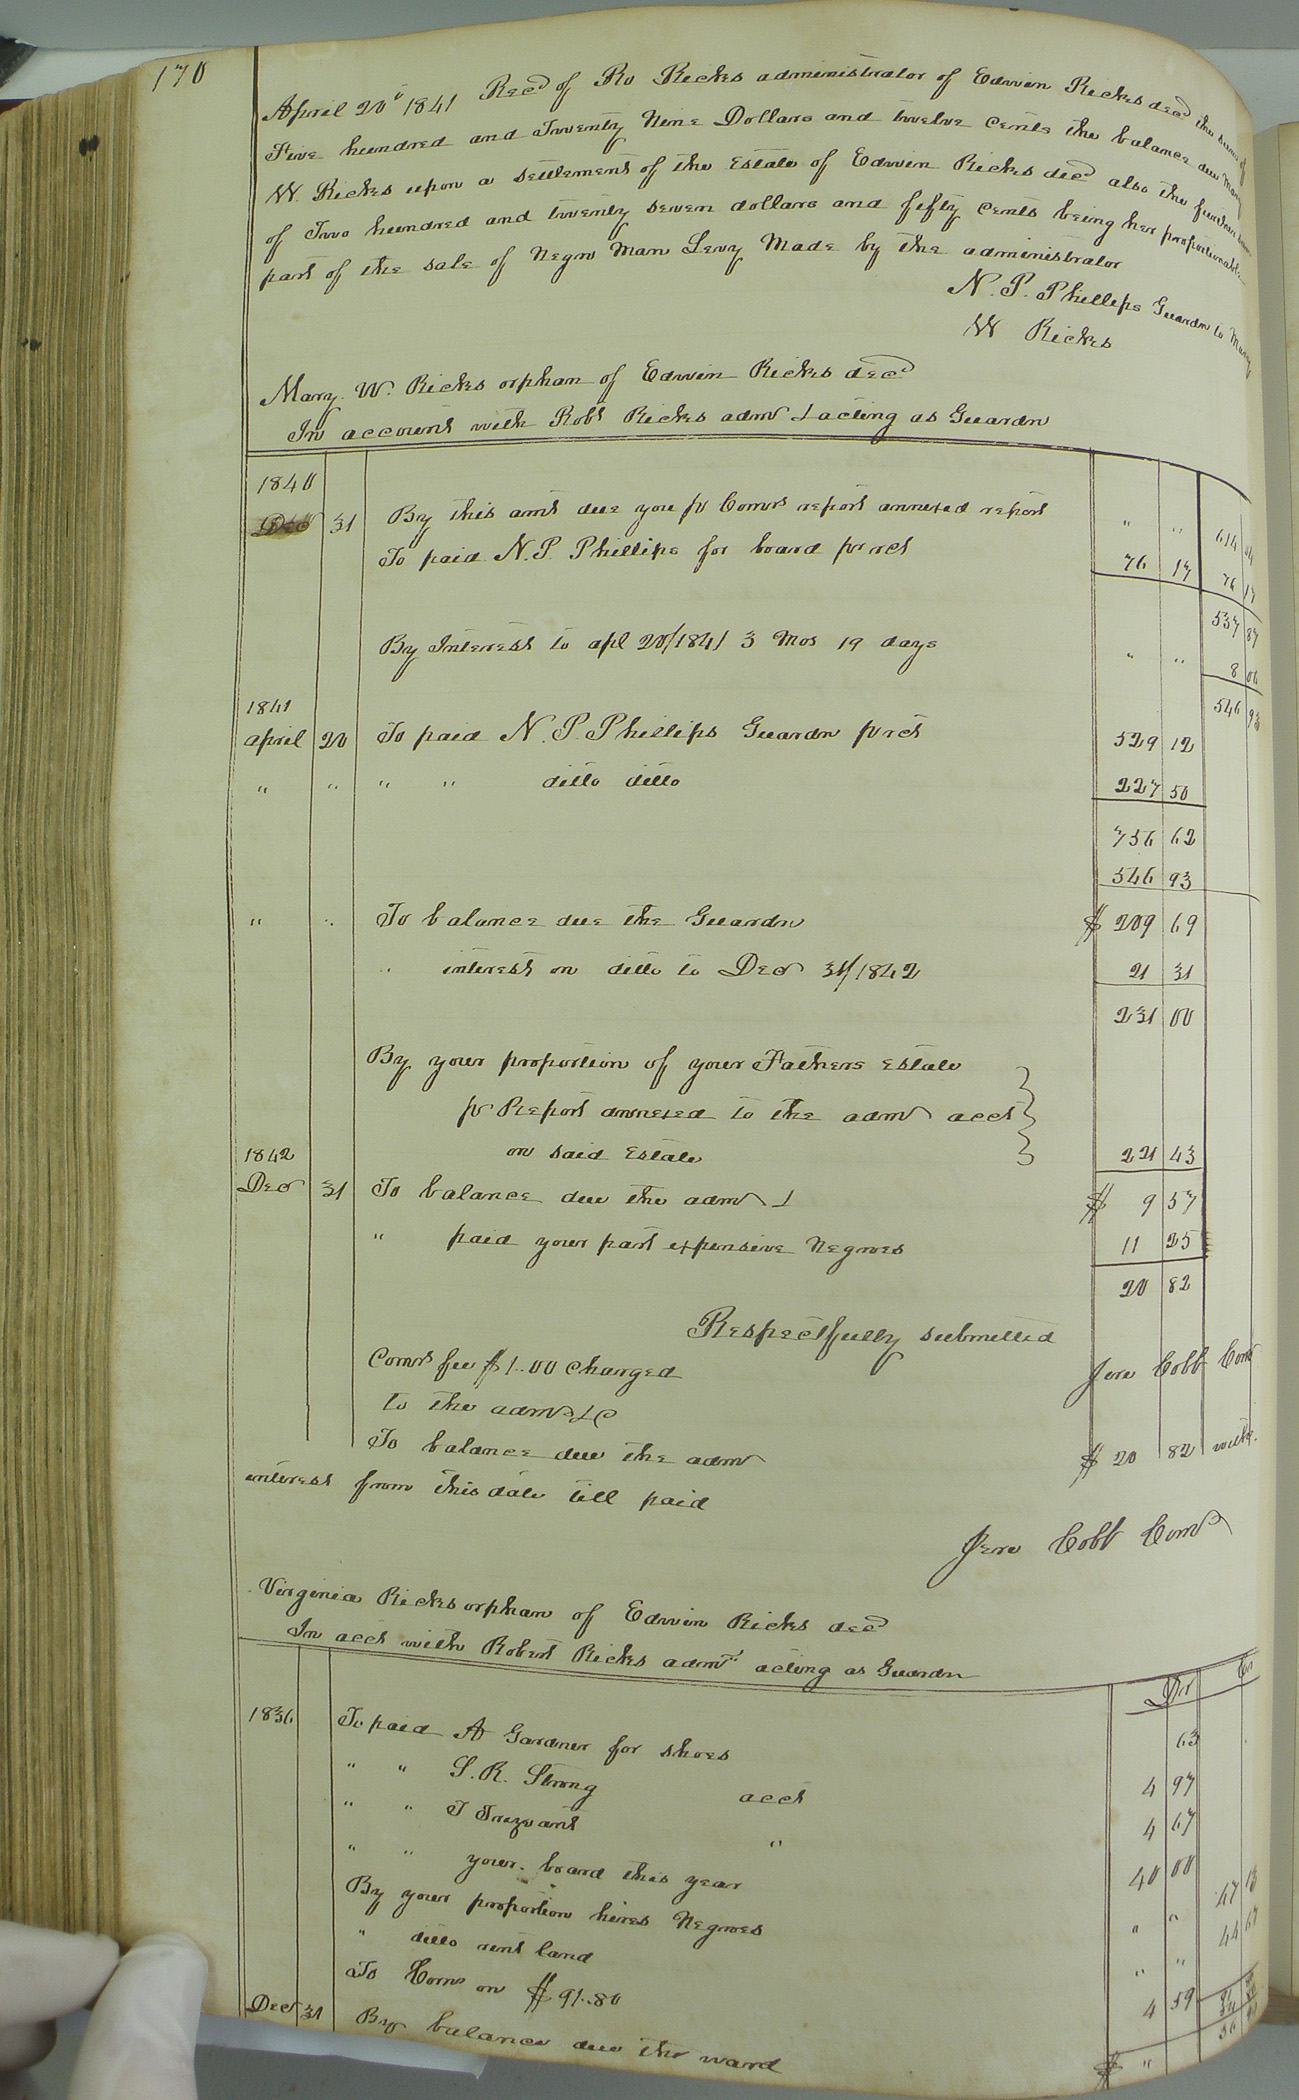 170
April 20th 1841 Recd of Ro Ricks administrator of Edwin Ricks decd the sum of
Five hundred and Twenty Nine Dollars and twelve cents the balance due Mary
W. Ricks upon a settlement of the Estate of Edwin Ricks decd also the further sum
of Two hundred and twenty seven dollars and fifty cents being her proportionable
part of the sale of Negro Man Levy Made by the administrator
N. P. Phillips Guardn to Mary
W Ricks
Mary W. Ricks orphan of Edwin Ricks decd
In account with Robt Ricks admr & acting as Guardn
1840
Dec 31 By this amt due you pr Comrs report annexed report " " 614 04
To paid N. P. Phillips for board pr rct 76 17 76 17
537 87
By Interest to apl 20/1841 3 Mos 19 days " " 8 06
1841 546 93
April 20 To paid N. P. Phillips Guardn pr rct 529 12
" " " " ditto ditto 227 50
756 62
546 93
" " To balance due the Guardn $ 209 69
" interest on ditto to Decr 31/1842 21 31
231 00
By your proportion of your Fathers Estate
pr Report annexed to the admr acct
1842 on said Estate 221 43
Decr 31 To balance due the admr & $ 9 57
" paid your part expensive Negroes 11 25
20 82
Respectfully submitted
Comrs fee $1.00 Charged Jere Cobb Comr
to the admr &c
To balance due the admr $ 20 82 with
interest from this date till paid
Jere Cobb Comr
Virginia Ricks orphan of Edwin Ricks decd
In acct with Robert Ricks admr acting as Guardn
Dr Cr
1836 To paid A Gardner for shoes 63
" " S. R. Strong acct 4 97
" " T Trezvant " 4 67
" " your board this year 40 00
By your proportion hires Negroes " " 47 13
" ditto rent land " " 44 67
To Coms on $91.80 4 59
Decr 31 By balance due the ward $ "